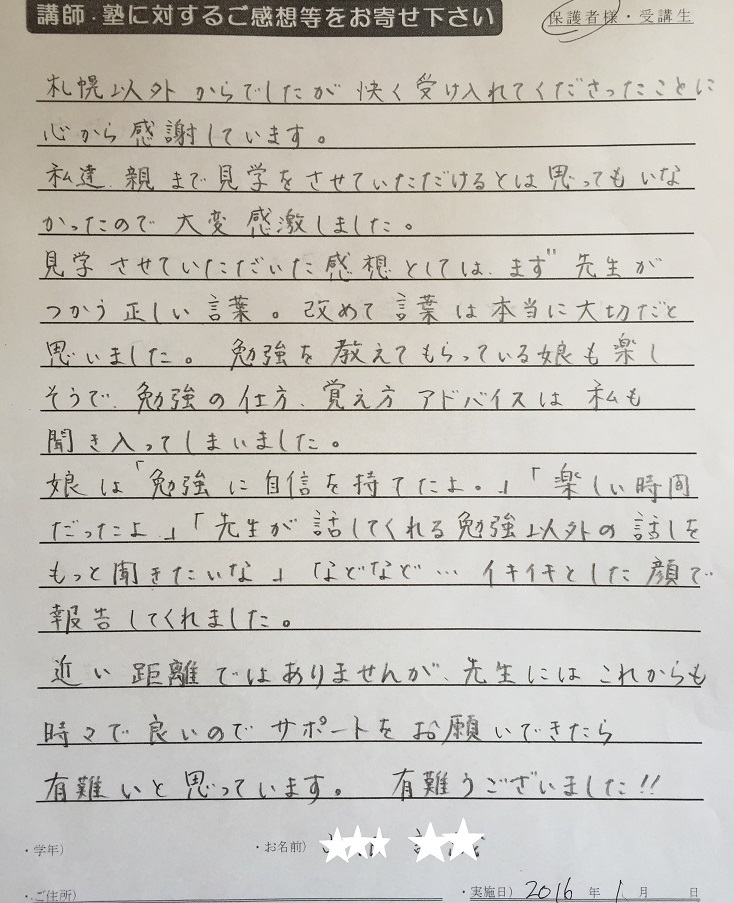 講師・塾に対するご感想等をお寄せ下さい
保護者様・受講生
札幌以外からでしたが快く受け入れてくださったことに
心から感謝しています。
私達、親まで見学をさせていただけるとは思ってもいな
かったので大変感激しました。
見学させていただいた感想としては、まず"先生が
つかう正しい言葉。改めて言葉は本当に大切だと
思いました。勉強を教えてもらっている娘も楽し
そうで、勉強の仕方、覚え方アドバイスは私も
聞き入ってしまいました。
娘は「勉強に自信を持てたよ。」「楽しい時間
だったよ」「先生が話してくれる勉強以外の話しを
もっと聞きたいな」などなど…イキイキとした顔で
報告してくれました。
近い距離ではありませんが、先生にはこれからも
時々で良いのでサポートをお願いできたら
有難いと思っています。有難うございました!!
・学年)
・お名前)
・ご住所)
・実施日) 2016年1月 日